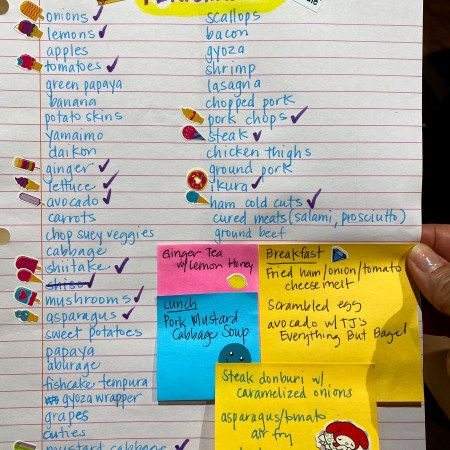 onions ✓
lemons ✓
apples
tomatoes ✓
green papaya
banana
potato skins
yamaimo
daikon
ginger ✓
lettuce ✓
avocado ✓
carrots
chop suey veggies
cabbage
shiitake ✓
shiso
mushrooms ✓
asparagus ✓
sweet potatoes
papaya
aburage
fishcake tempura
gyoza wrapper
grapes
cuties
mustard cabbage ✓
scallops
bacon
gyoza
shrimp
lasagna
chopped pork
pork chops ✓
steak ✓
chicken thighs
ground pork
ikura ✓
ham cold cuts ✓
cured meats (salami, prosciutto)
ground beef
Ginger Tea
w/Lemon Honey
Lunch
Pork Mustard
Cabbage Soup
Breakfast
Fried ham/onion/tomato
cheese melt
Scrambled egg
avocado w/TJ's
Everything But Bagel
Steak donburi w/
caramelized onions
asparagus/tomato
air fry